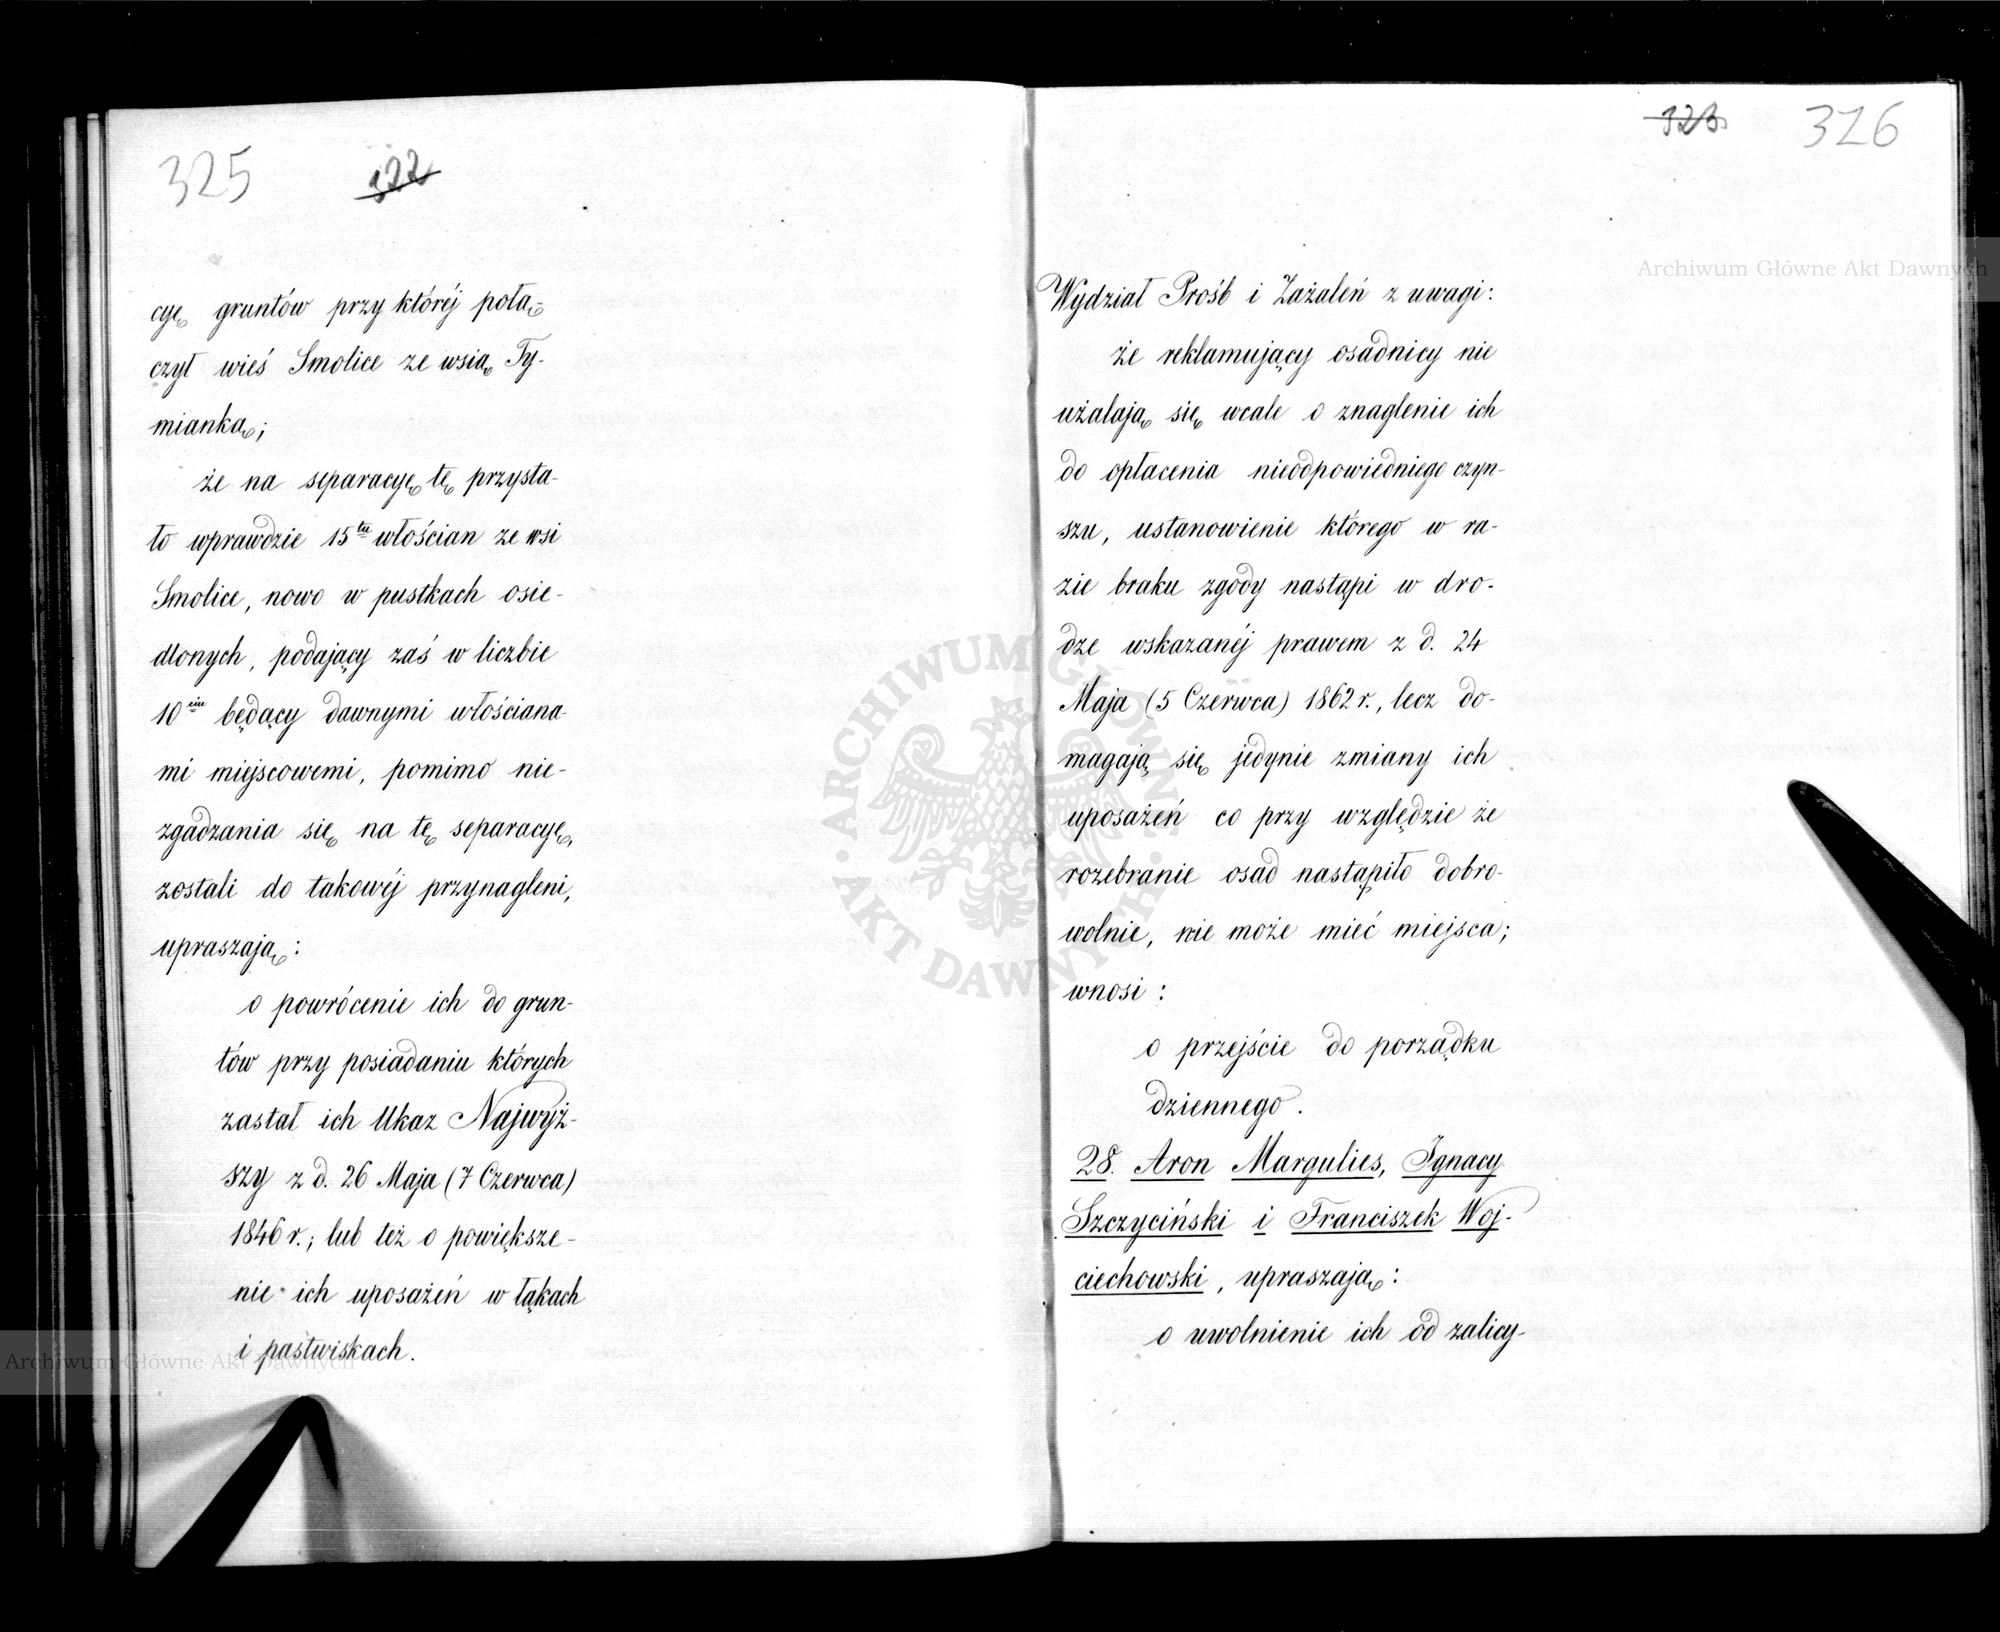 325 322
cyę gruntów przy któréj połą-
czył wieś Smolice ze wsią Ty-
mianką;
że na separacyę tę przysta-
ło wprawdzie 15tu włościan ze wsi
Smolice, nowo w pustkach osie-
dlonych, podający zaś w liczbie
10iu będący dawnymi włościana-
mi miejscowemi, pomimo nie-
zgadzania się na tę separacyę,
zostali do takowéj przynagleni,
upraszają:
o powrócenie ich do grun-
tów przy posiadaniu których
zastał ich Ukaz Najwyż-
szy z d. 26 Maja (7 Czerwca)
1846 r.; lub też o powiększe-
nie ich uposażeń w łąkach
i pastwiskach.
323 326
Wydział Próśb i Zażaleń z uwagi:
że reklamujący osadnicy nie
użalają się wcale o znaglenie ich
do opłacenia nieodpowiedniego czyn-
szu, ustanowienie którego w ra-
zie braku zgody nastąpi w dro-
dze wskazanéj prawem z d. 24
Maja (5 Czerwca) 1862 r., lecz do-
magają się jedynie zmiany ich
uposażeń co przy względzie że
rozebranie osad nastąpiło dobro-
wolnie, nie może mieć miejsca;
wnosi:
o przejście do porządku
dziennego.
28. Aron Margulies, Ignacy
Szczyciński i Franciszek Woj-
ciechowski, upraszają:
o uwolnienie ich od zalicy-
Archiwum Główne Akt Dawnych
Archiwum Główne Akt Dawnych
ARCHIWUM GŁÓWNE
AKT DAWNYCH